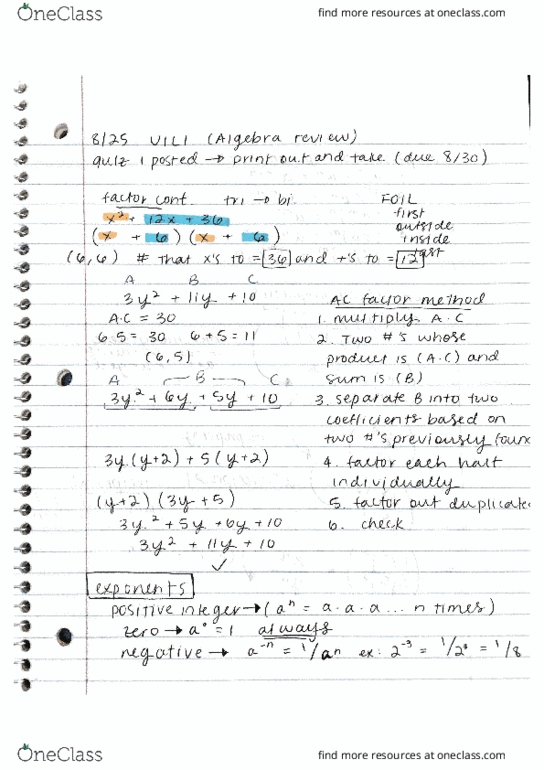 OneClass
find more resources at oneclass.com
8/25 U1L1 (Algebra review)
quiz 1 posted → print out and take (due 8/30)
factor cont. tri → bi
FOIL
first
outside
inside
last
x² + 12x + 36
(x + 6)(x + 6)
(6,6) # that x's to = 36 and +'s to = 12
A B C
3y² + 11y + 10
A·C = 30
6·5 = 30 6+5 = 11
(6,5)
A B C
3y² + 6y + 5y + 10
3y(y+2) + 5(y+2)
(y+2)(3y+5)
3y² + 5y + 6y + 10
3y² + 11y + 10
✓
AC factor method
1. multiply A·C
2. Two #'s whose
product is (A·C) and
sum is (B)
3. separate B into two
coefficients based on
two #'s previously foun
4. factor each half
individually
5. factor out duplicate
6. check
exponents
positive integer → (aⁿ = a·a·a ... n times)
zero → a° = 1 always
negative → a⁻ⁿ = 1/aⁿ ex: 2⁻³ = 1/2³ = 1/8
OneClass
find more resources at oneclass.com